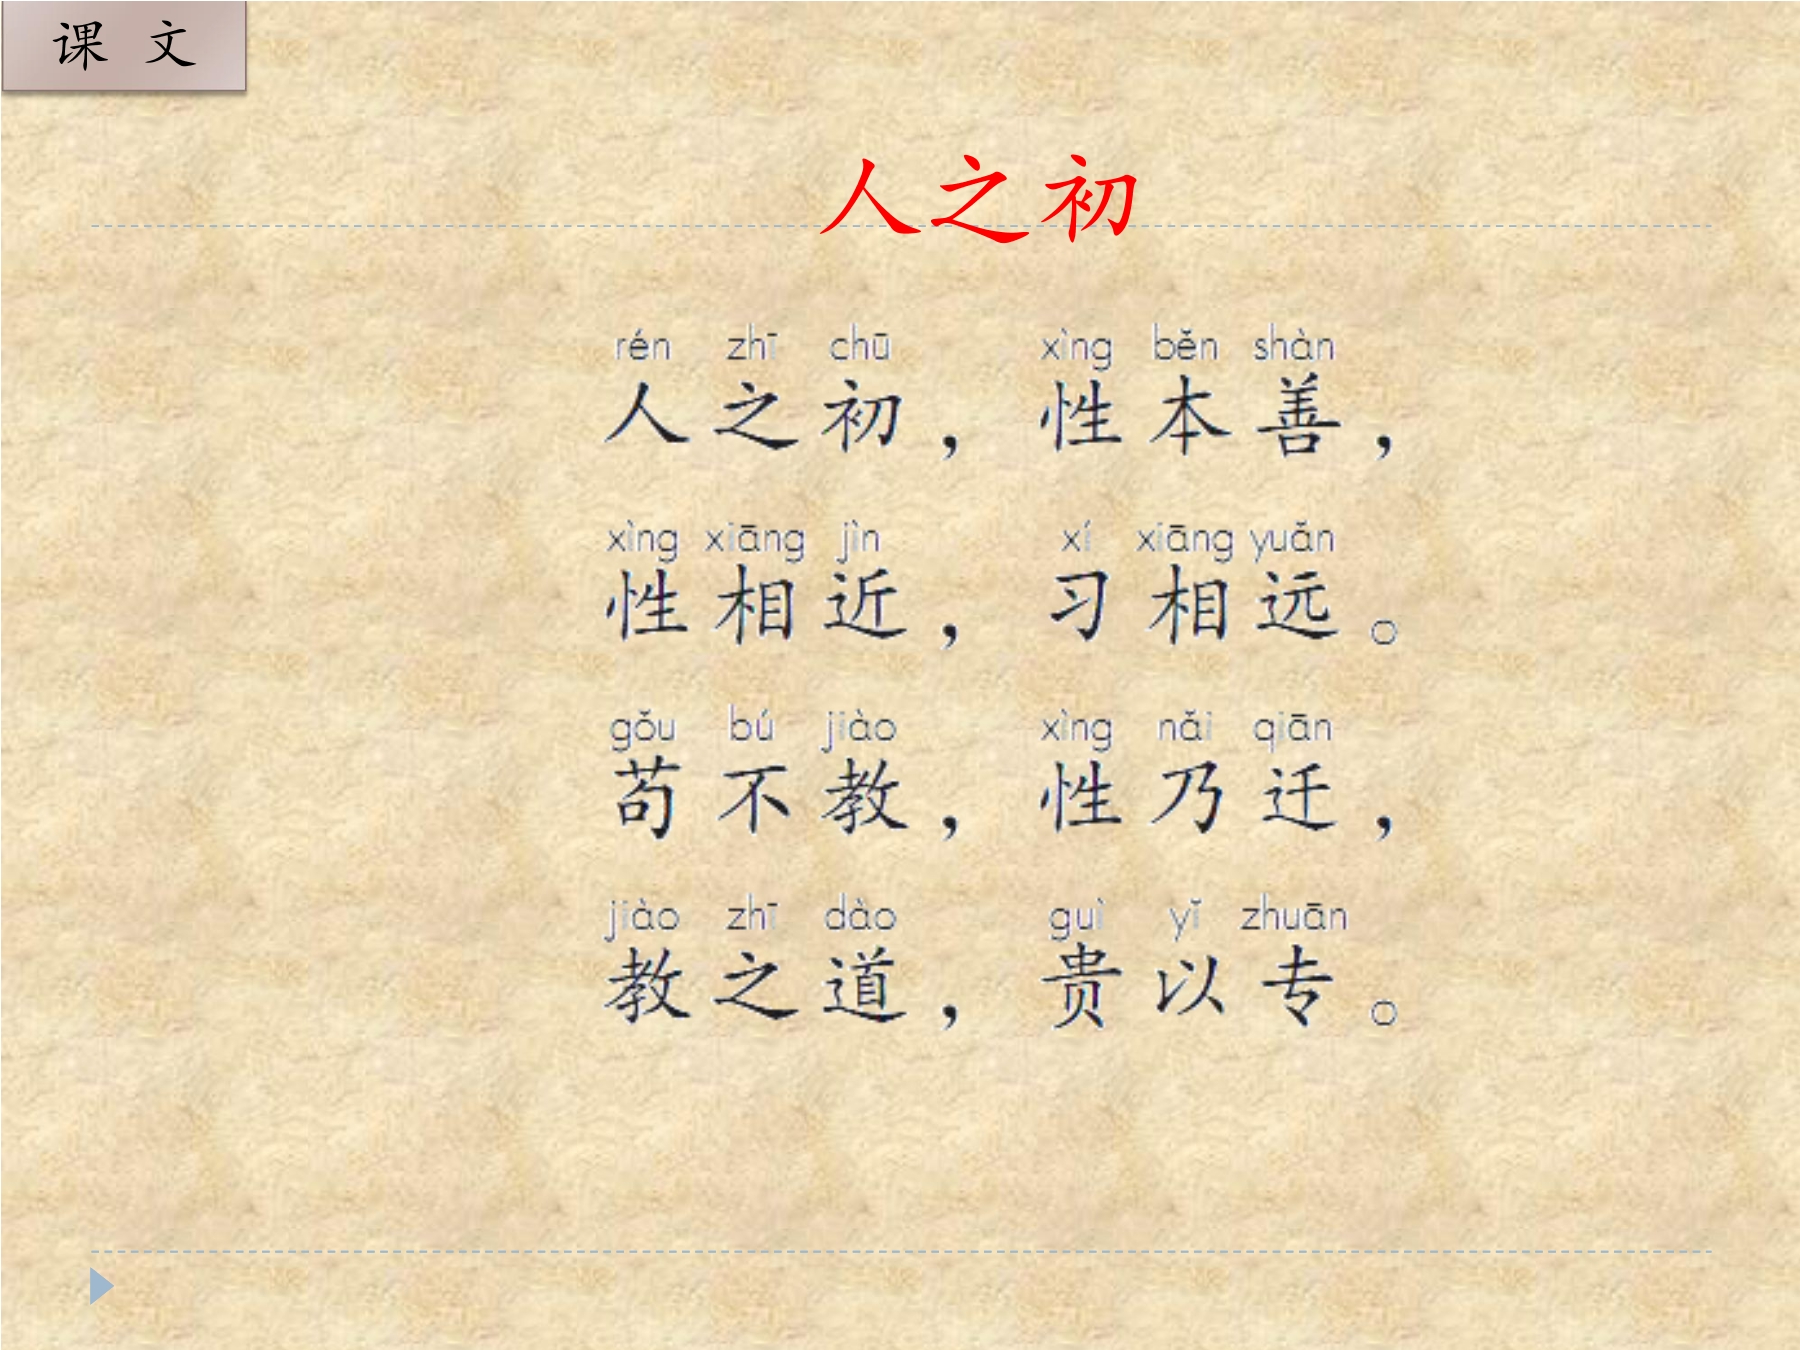 课 文
人之初
rén zhī chū xìng běn shàn
人之初，性本善，
xìng xiāng jìn xí xiāng yuǎn
性相近，习相远。
gǒu bú jiào xìng nǎi qiān
苟不教，性乃迁，
jiào zhī dào guì yǐ zhuān
教之道，贵以专。